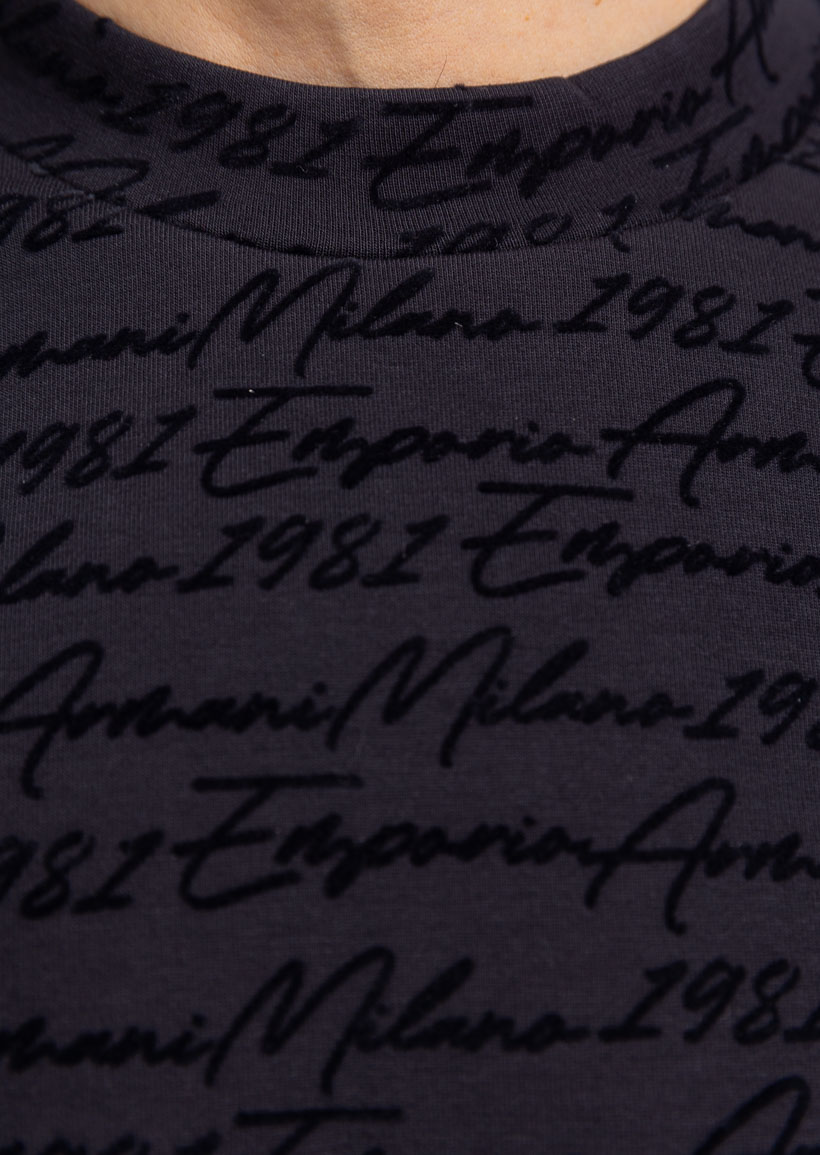 1981 Emporio A
981
1981
mani Milano 1981
1981 Emporio Arm
ilano 1981 Emporio
Armani Milano 198
981 Emporio Arm
mani Milano 1981